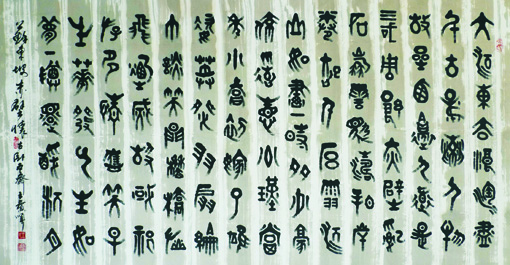 大江東去浪淘盡
千古風流人物
故壘西邊人道是
三國周郎赤壁亂
石崩雲驚濤拍岸
捲起千堆雪江
山如畫一時多少豪
傑遙想公瑾當
年小喬初嫁了雄
姿英發羽扇綸
巾談笑間檣櫓灰
飛煙滅故國神
遊多情應笑早
生華發人生如
夢一樽還酹江月
蘇東坡赤壁懷古